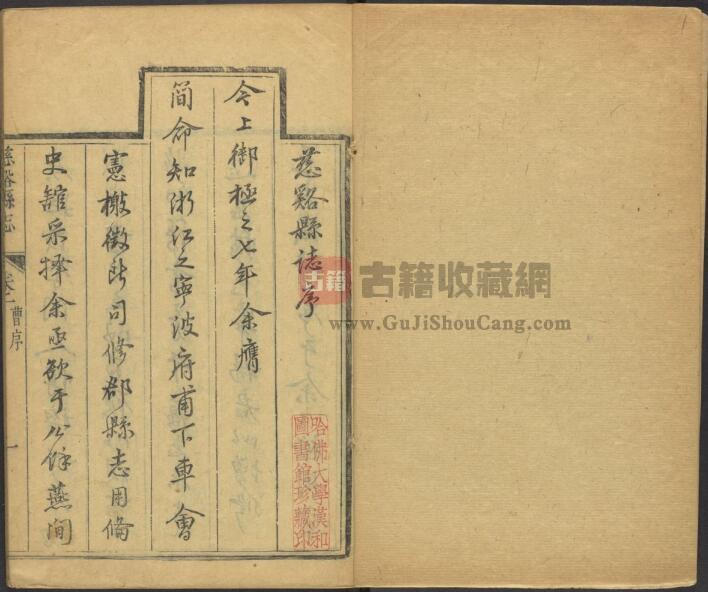 慈谿縣誌序
今上御極之七年余膺
簡命知浙江之寧波府甫下車會
憲檄徵所司修郡縣志用備
史舘采擇余亟欲于公餘燕間
慈谿縣志
卷一
曹序
一
哈佛大學漢和
圖書館珍藏印
古籍
古籍收藏網
www.GuJiShouCang.com